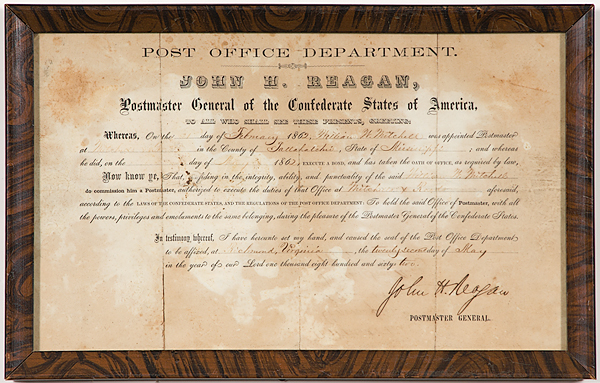 POST OFFICE DEPARTMENT.
JOHN H. REAGAN,
Postmaster General of the Confederate States of America,
TO ALL WHO SHALL SEE THESE PRESENTS, GREETING:
Whereas, On the day of February 1862, William W. Mitchell was appointed Postmaster
at in the County of Tallahatchie, State of Mississippi; and whereas
he did, on the day of 1862, EXECUTE A BOND, and has taken the OATH OF OFFICE, as required by law,
Now know ye, That, confiding in the integrity, ability, and punctuality of the said W. Mitchell
do commission him a Postmaster, authorized to execute the duties of that Office at aforesaid,
according to the LAWS OF THE CONFEDERATE STATES, AND THE REGULATIONS OF THE POST OFFICE DEPARTMENT: To hold the said Office of Postmaster, with all
the powers, privileges and emoluments to the same belonging, during the pleasure of the Postmaster General of the Confederate States.
In testimony whereof, I have hereunto set my hand, and caused the seal of the Post Office Department
to be affixed, at Richmond, Virginia the twenty second day of May
in the year of our Lord one thousand eight hundred and sixty two.
John H. Reagan
POSTMASTER GENERAL.